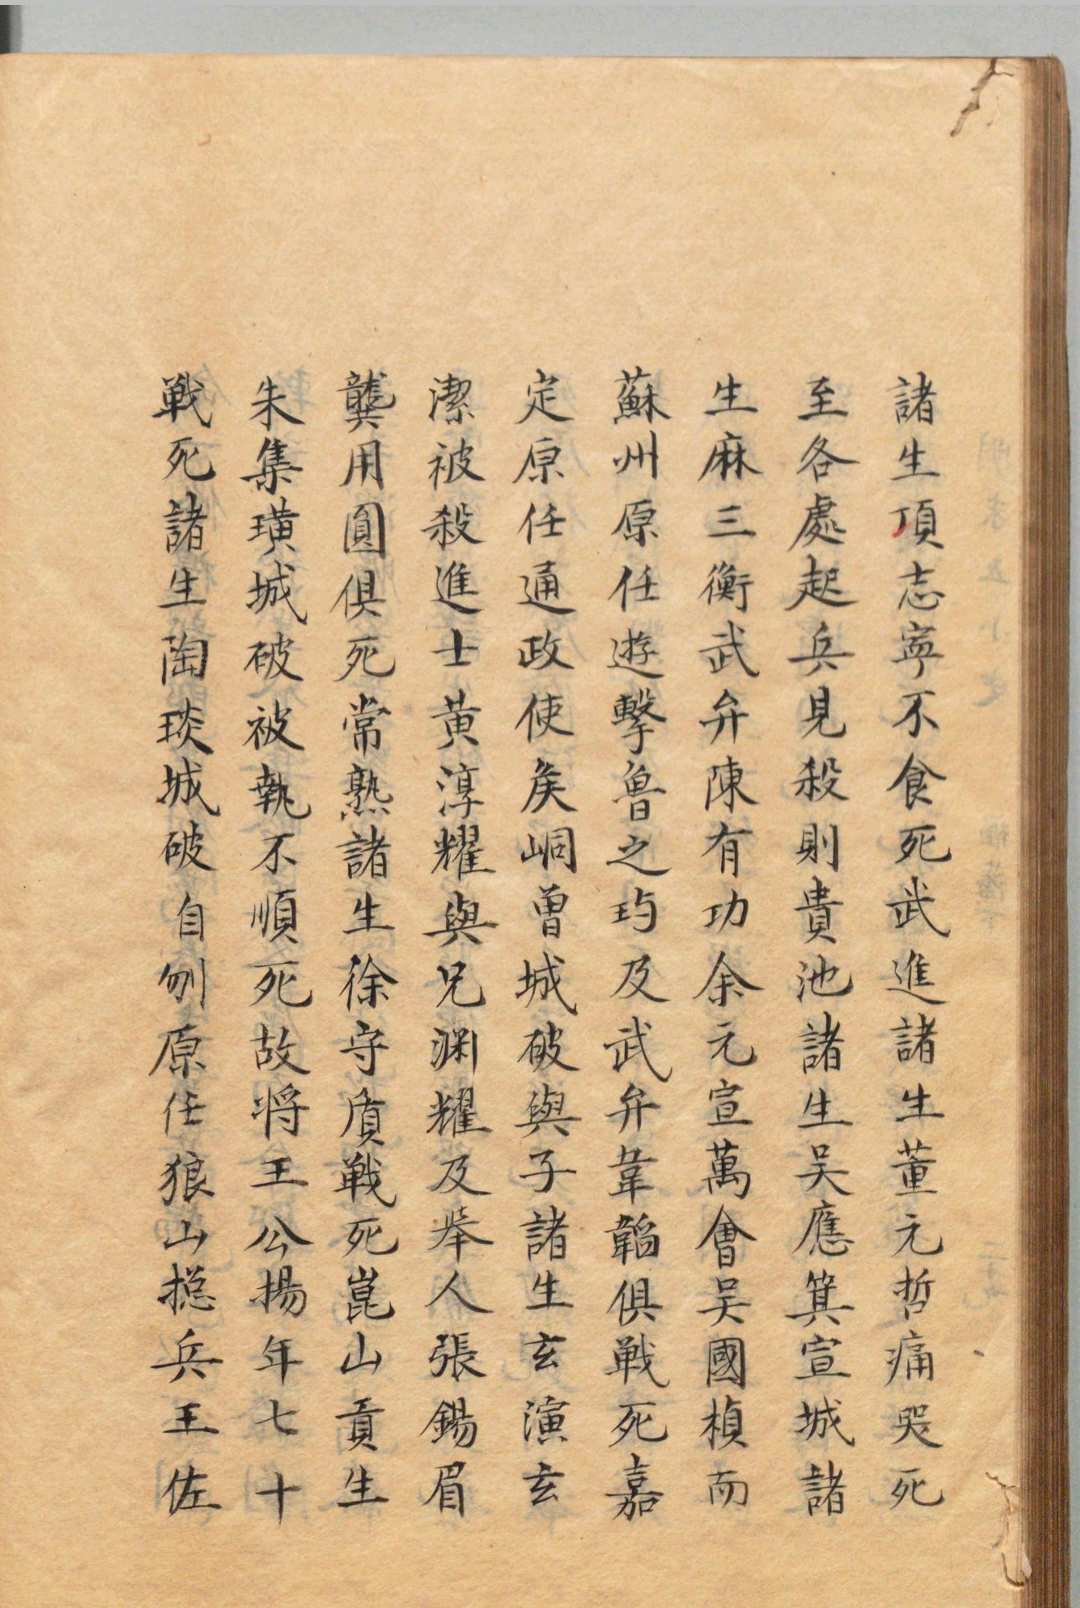 諸生項志寧不食死武進諸生董元哲痛哭死
至各處起兵見殺則貴池諸生吴應箕宣城諸
生麻三衡武弁陳有功余元宣萬會吴國楨而
蘇州原任遊擊魯之玙及武弁韋韜俱戦死嘉
定原任通政使矦峒曽城破與子諸生玄演玄
潔被殺進士黄淳耀與兄渊耀及举人張錫眉
龔用圓俱死常熟諸生徐守質戦死崑山貢生
朱集璜城破被執不順死故将王公揚年七十
戦死諸生陶琰城破自刎原任狼山揔兵王佐